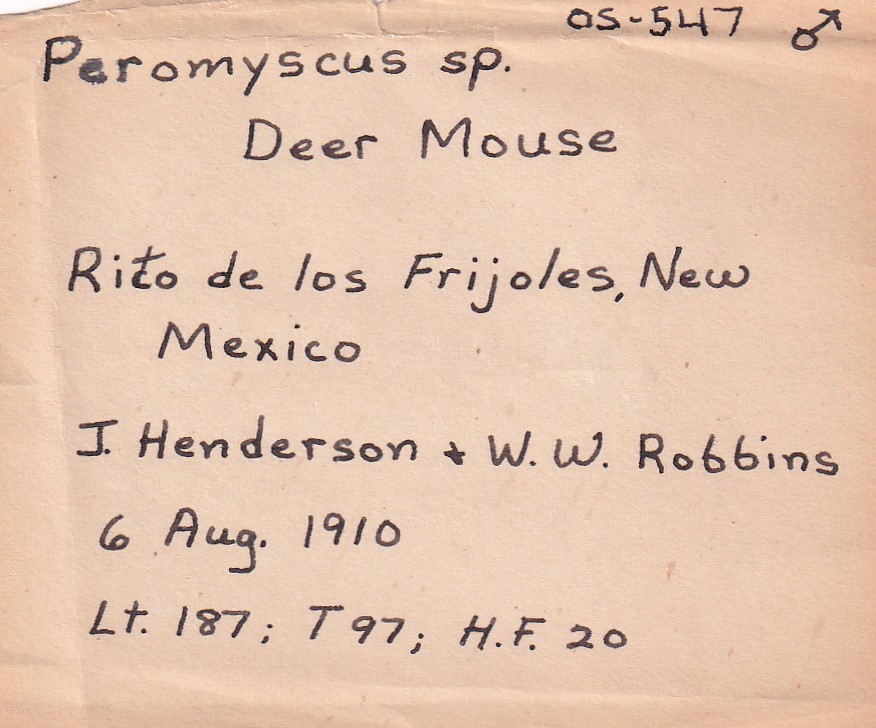 OS-547 ♂
Peromyscus sp.
Deer Mouse
Rito de los Frijoles, New
Mexico
J. Henderson + W.W. Robbins
6 Aug. 1910
Lt. 187; T 97; H.F. 20